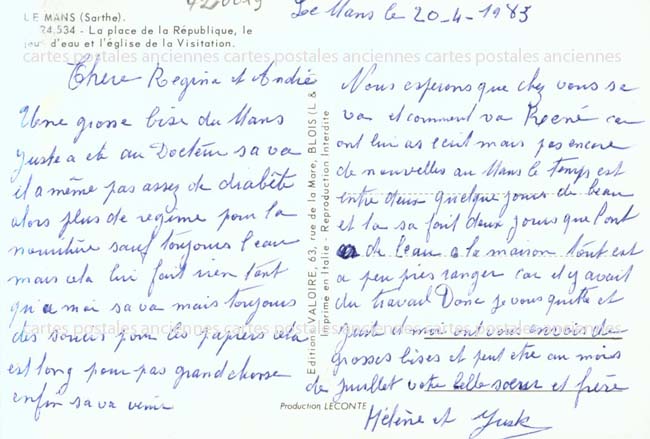 LE MANS (Sarthe).
24.534 - La place de la République, le
jeu d'eau et l'église de la Visitation.
Le Mans le 20-4-1983
Chere Regina et André
Une grosse bise du Mans
Juste a ete au Docteur sa va
il a même pas assez de diabète
alors plus de regime pour la
nourriture sauf toujours l'eau
mais cela lui fait rien tant
qu'a moi sa va mais toujours
des soucis pour les papiers cela
est long pour pas grandchose
enfin sa va venir
Edition VALOIRE, 63, rue de la Mare, BLOIS (L &
Imprimé en Italie - Reproduction Interdite
Production LECONTE
Nous esperons que chez vous sa
va et comment va car
ont lui as ecrit mais pas encore
de nouvelles au Mans le temps est
entre deux quelque jours de beau
et la sa fait deux jours que l'ont
a de l'eau a la maison tout est
a peu pres ranger car il y avait
du travail Donc je vous quitte et
Juste et moi ont vous envoie de
grosses bises et peut etre au mois
de juillet votre belle soeur et frère
Hélène et
cartes postales anciennes cartes postales anciennes cartes postales anciennes
cartes postales anciennes cartes postales anciennes cartes postales anciennes